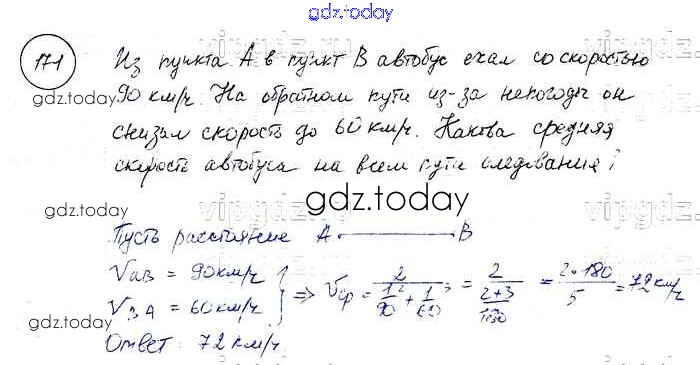 gdz.today
171
Из пункта А в пункт В автобус ехал со скоростью
90 км/ч. На обратном пути из-за непогоды он
снизил скорость до 60 км/ч. Какова средняя
скорость автобуса на всем пути следования?
gdz.today
gdz.today
vipgdz
Пусть расстояние А B
V_AB = 90 км/ч
V_BA = 60 км/ч
=> Vср = 2 / (1/90 + 1/60) = 2 / ((2+3)/180) = 2·180 / 5 = 72 км/ч
Ответ: 72 км/ч
gdz.today